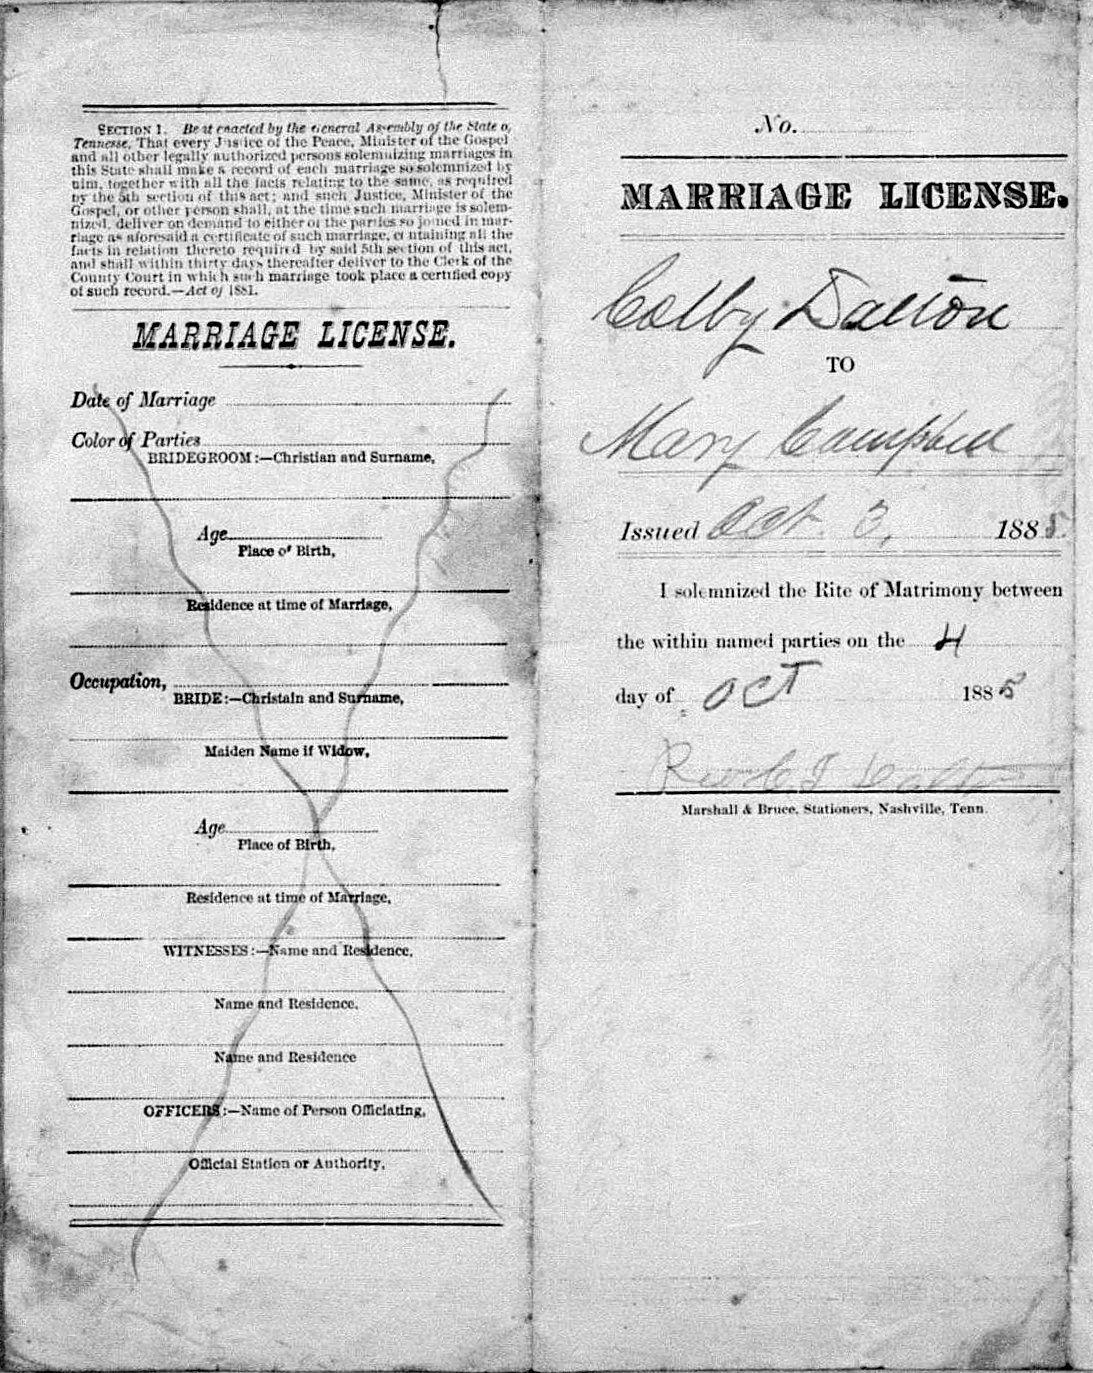 SECTION 1. Be it enacted by the General Assembly of the State o,
Tennesse, That every Justice of the Peace, Minister of the Gospel
and all other legally authorized persons solemnizing marriages in
this State shall make a record of each marriage so solemnized by
him, together with all the facts relating to the same, as required
by the 5th section of this act; and such Justice, Minister of the
Gospel, or other person shall, at the time such marriage is solem-
nized, deliver on demand to either of the parties so joined in mar-
riage as aforesaid a certificate of such marriage, containing all the
facts in relation thereto required by said 5th section of this act,
and shall within thirty days thereafter deliver to the Clerk of the
County Court in which such marriage took place a certified copy
of such record.—Act of 1881.
MARRIAGE LICENSE.
Date of Marriage
Color of Parties
BRIDEGROOM:—Christian and Surname,
Age
Place of Birth,
Residence at time of Marriage,
Occupation,
BRIDE:—Christain and Surname,
Maiden Name if Widow,
Age
Place of Birth,
Residence at time of Marriage,
WITNESSES:—Name and Residence,
Name and Residence,
Name and Residence
OFFICERS:—Name of Person Officiating,
Official Station or Authority,
No.
MARRIAGE LICENSE.
Colby Dalton
TO
Mary Campbell
Issued Oct. 3, 1885.
I solemnized the Rite of Matrimony between
the within named parties on the 4
day of OCT 1885
Dalton
Marshall & Bruce, Stationers, Nashville, Tenn.